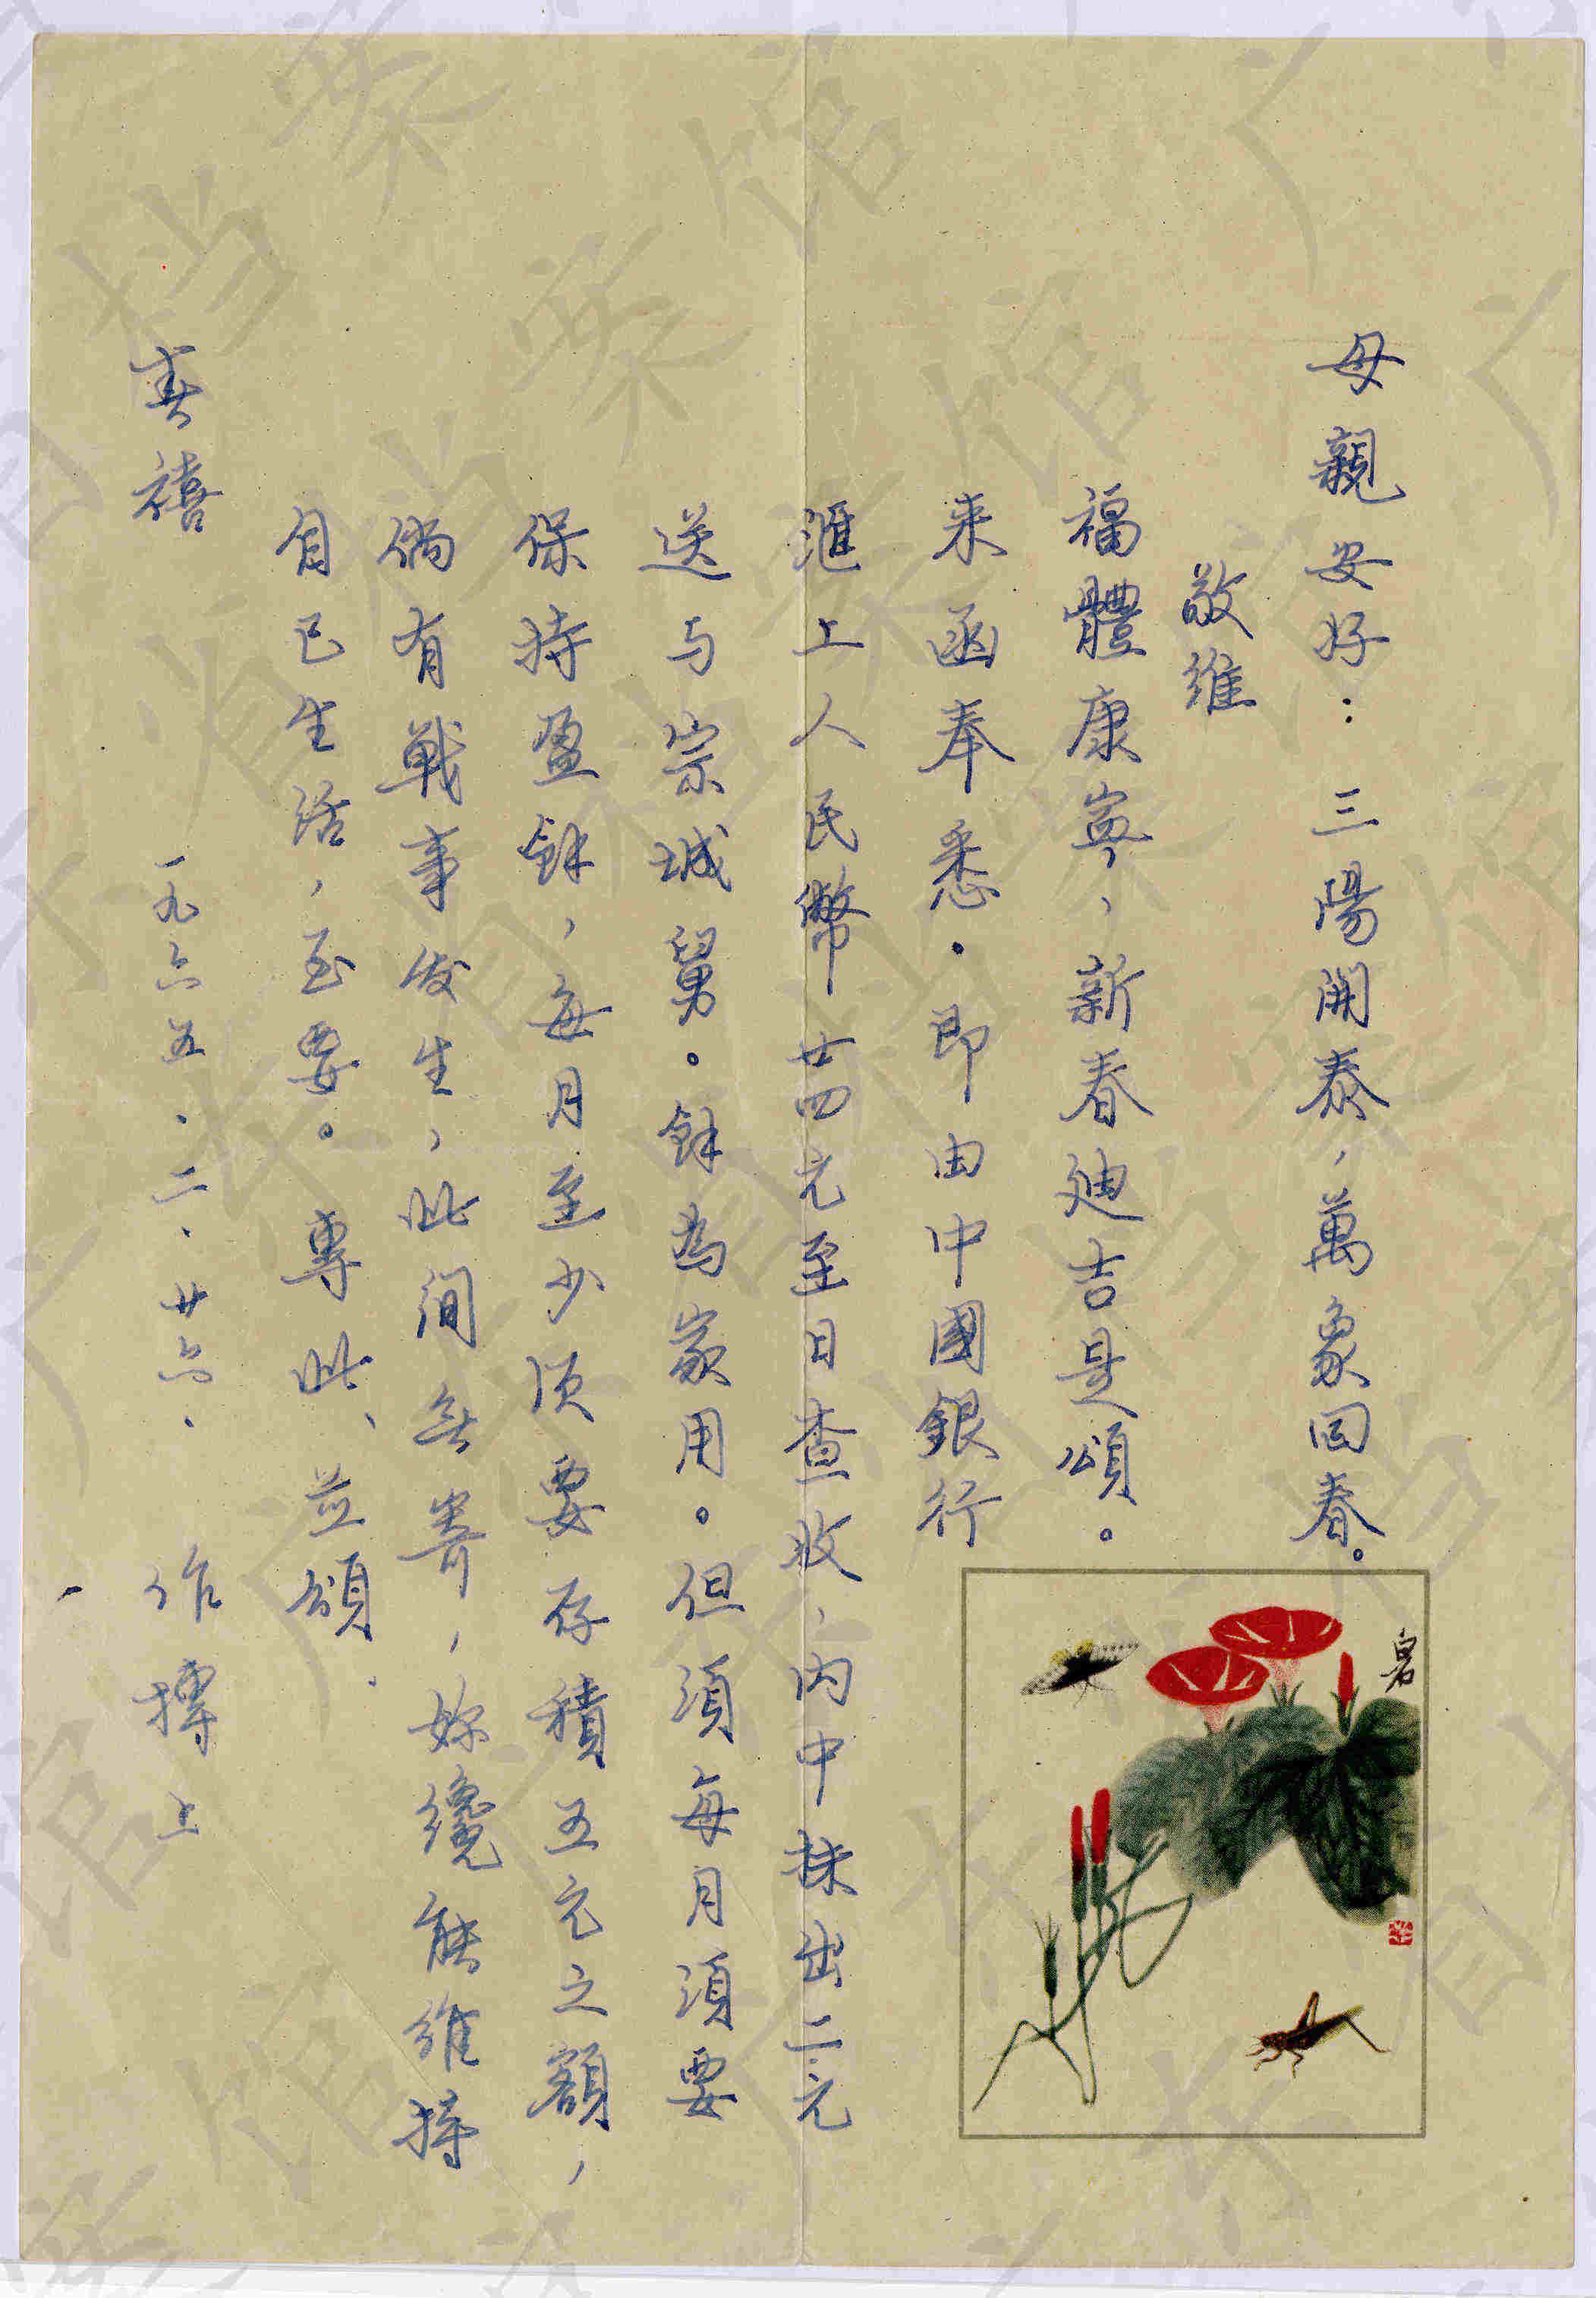 母親安好：三陽開泰，萬象回春。
敬維
福體康寧，新春迪吉是頌。
来函奉悉．即由中國銀行
滙上人民幣廿四元至日查收，内中抹出二元
送与宗城舅。餘為家用。但須每月須要
保持盈餘，每月至少須要存積五元之額，
倘有戰事发生，此间無寄，妳纔能維持
自已生活，至要。專此、並頌．
春禧
一九六五．二．廿六． 作摶上
碧